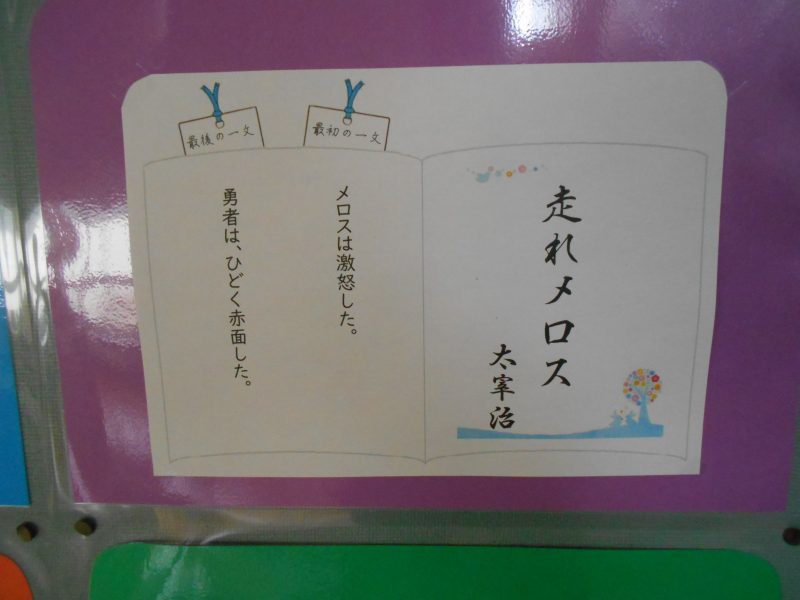 走れメロス
太宰治
最初の一文
メロスは激怒した。
最後の一文
勇者は、ひどく赤面した。